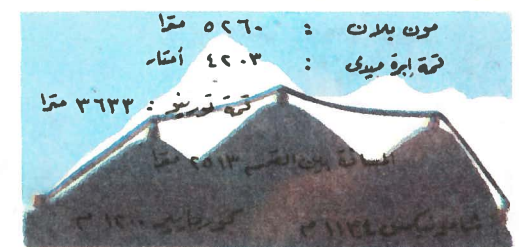 مون بلان : ٥٢٦٠ مترا
قمة إبرة ميدى : ٤٢٠٣ أمتار
قمة تورينو : ٣٦٣٣ مترا
المسافة بين القمم ٢٥١٣ مترا
شامونيكس ١١٣٤ م كورمايير ١٢٠٠ م